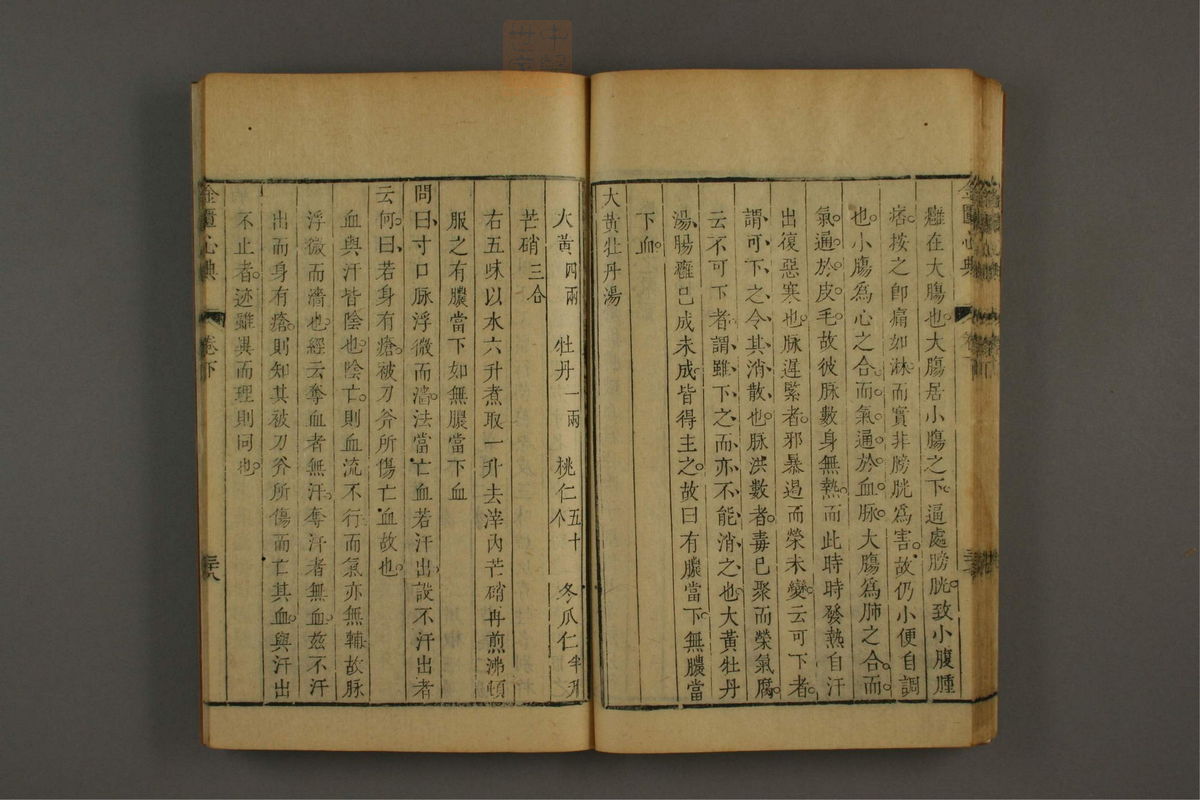 癰在大膓也大膓居小膓之下逼處膀胱致小腹腫
痞按之卽痛如淋而實非膀胱爲害故仍小便自調
也小膓爲心之合而氣通於血脉大膓爲肺之合而
氣通於皮毛故彼脉數身無熱而此時時發熱自汗
出復惡寒也脉遲緊者邪暴遏而榮未變云可下者
謂可下之令其消散也脉洪數者毒已聚而榮氣腐
云不可下者謂雖下之而亦不能消之也大黃牡丹
湯腸癰已成未成皆得主之故曰有膿當下無膿當
下血
大黃牡丹湯
大黃四兩 牡丹一兩 桃仁五十个 冬瓜仁半升
芒硝三合
右五味以水六升煮取一升去滓內芒硝再煎沸頓
服之有膿當下如無膿當下血
問曰寸口脉浮微而濇法當亡血若汗出設不汗出者
云何曰若身有瘡被刀斧所傷亡血故也
血與汗皆陰也陰亡則血流不行而氣亦無輔故脉
浮微而濇也經云奪血者無汗奪汗者無血茲不汗
出而身有瘡則知其被刀斧所傷而亡其血與汗出
不止者迹雖異而理則同也
金匱心典 卷下 三十八